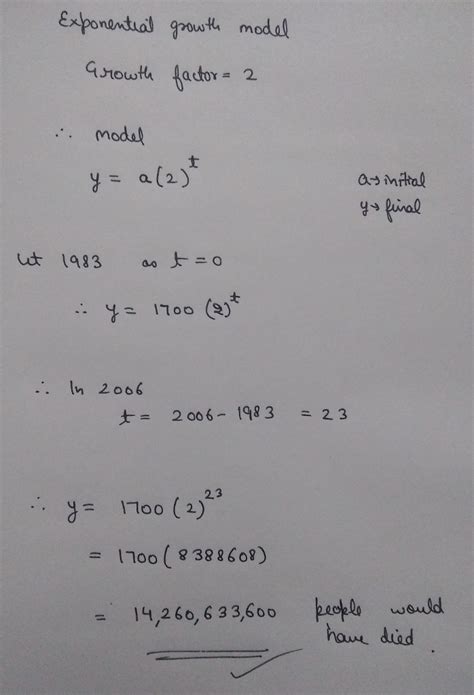 Exponential growth model
Growth factor = 2
∴ model
y = a(2)^t
a→initial
y→final
Let 1983 as t = 0
∴ y = 1700 (2)^t
∴ In 2006
t = 2006 - 1983 = 23
∴ y = 1700 (2)^23
= 1700 (8388608)
= 14,260,633,600 people would
have died.